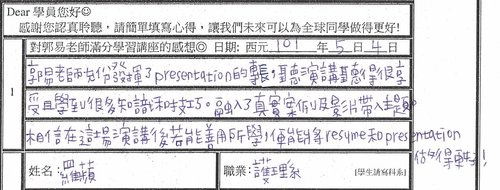 Dear 學員您好☺
感謝您認真聆聽,請簡單填寫心得,讓我們未來可以為全球同學做得更好!
對郭易老師滿分學習講座的感想◎ 日期: 西元 101 年 5 月 4 日
1
郭易老師充份發揮了presentation的專長,聽演講聽得很享
受且學到很多知識和技巧。融入了真實案例以及影片帶入主題。
相信在這場演講後若能善用所學,便能將resume和presentation
做得更好!
姓名: 職業: 護理系 [學生請寫科系]